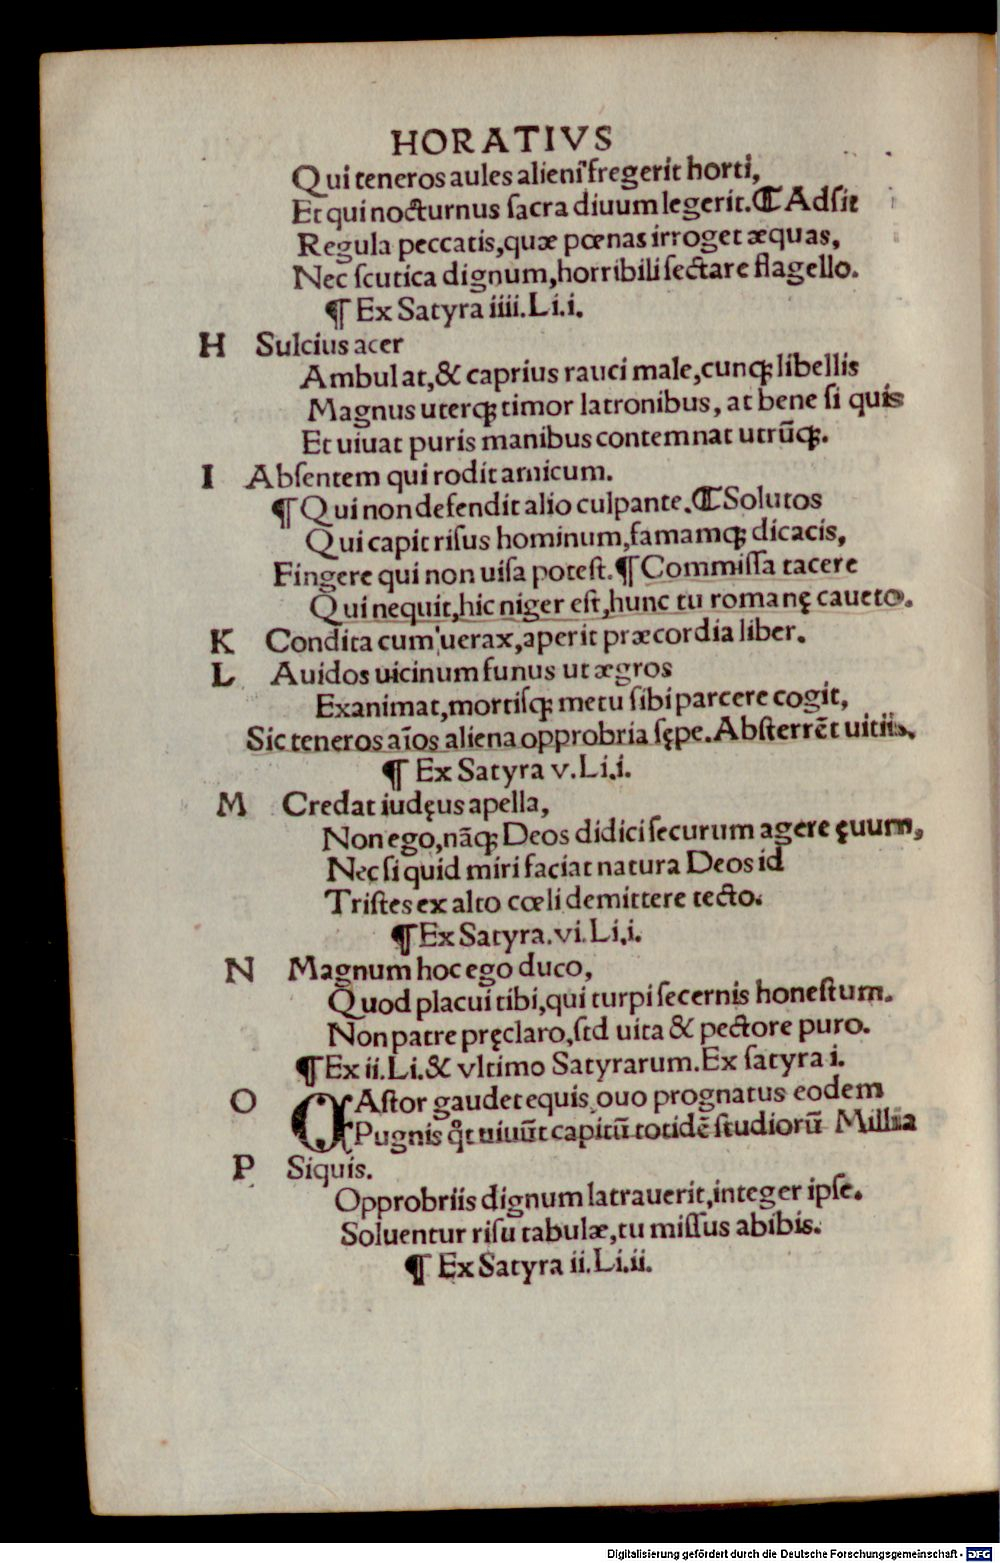 HORATIVS
Qui teneros aules alieni fregerit horti,
Et qui nocturnus sacra diuum legerit.¶ Adsit
Regula peccatis,quæ pœnas irroget æquas,
Nec scutica dignum,horribili sectare flagello.
¶ Ex Satyra iiii.Li.i.
H Sulcius acer
Ambulat,& caprius rauci male,cunqꝫ libellis
Magnus uterqꝫ timor latronibus, at bene si quis
Et uiuat puris manibus contemnat utrūqꝫ.
I Absentem qui rodit amicum.
¶ Qui non defendit alio culpante.¶ Solutos
Qui capit risus hominum,famamqꝫ dicacis,
Fingere qui non uisa potest.¶ Commissa tacere
Qui nequit,hic niger est,hunc tu romanę caueto.
K Condita cum uerax,aperit præcordia liber.
L Auidos uicinum funus ut ægros
Exanimat,mortisqꝫ metu sibi parcere cogit,
Sic teneros aīos aliena opprobria sępe.Absterrēt uitiis.
¶ Ex Satyra v.Li.i.
M Credat iudęus apella,
Non ego,nāqꝫ Deos didici securum agere ęuum,
Nec si quid miri faciat natura Deos id
Tristes ex alto cœli demittere tecto.
¶ Ex Satyra.vi.Li.i.
N Magnum hoc ego duco,
Quod placui tibi,qui turpi secernis honestum.
Non patre pręclaro,sed uita & pectore puro.
¶ Ex ii.Li.& vltimo Satyrarum.Ex satyra i.
O CAstor gaudet equis,ouo prognatus eodem
Pugnis qͦt uiuūt capitū totidē studiorū Millia
P Siquis.
Opprobriis dignum latrauerit,integer ipse.
Soluentur risu tabulæ,tu missus abibis.
¶ Ex Satyra ii.Li.ii.
Digitalisierung gefördert durch die Deutsche Forschungsgemeinschaft - DFG